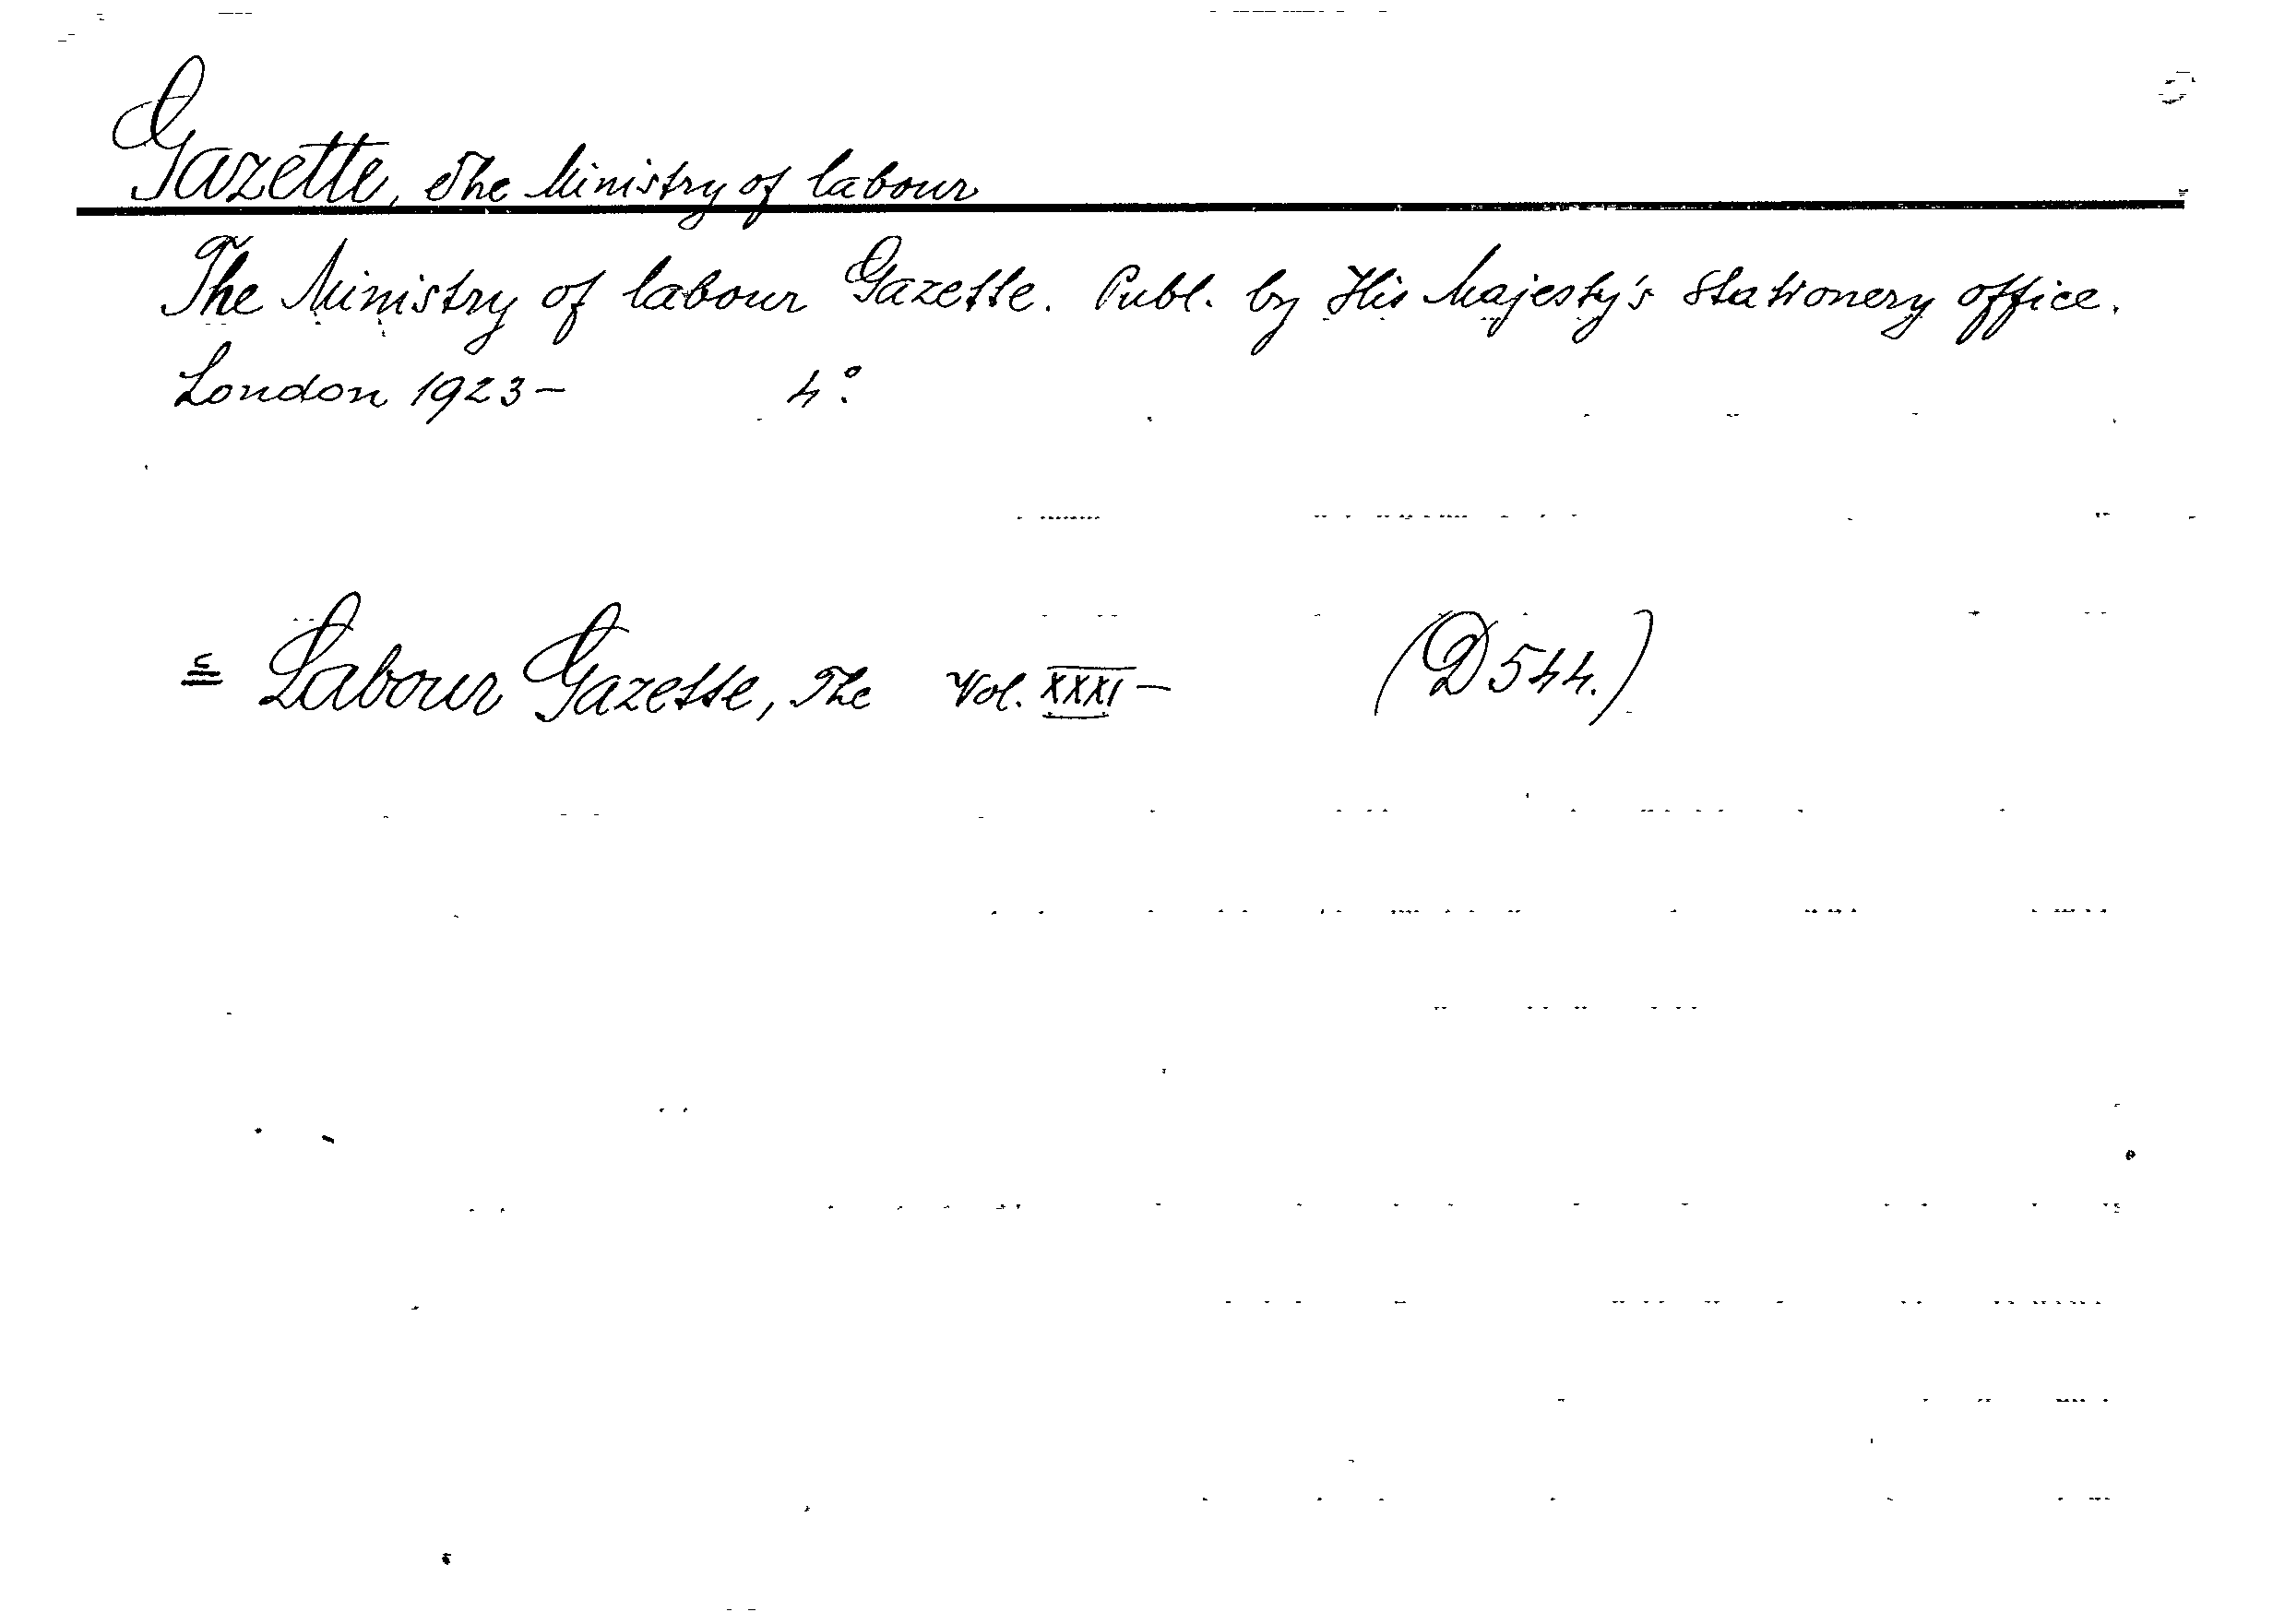 Gazette, The Ministry of labour
The Ministry of labour Gazette. Publ. by His Majesty's Stationery office.
London 1923- 4°.
= Labour Gazette, The Vol. XXXI- (D 544.)